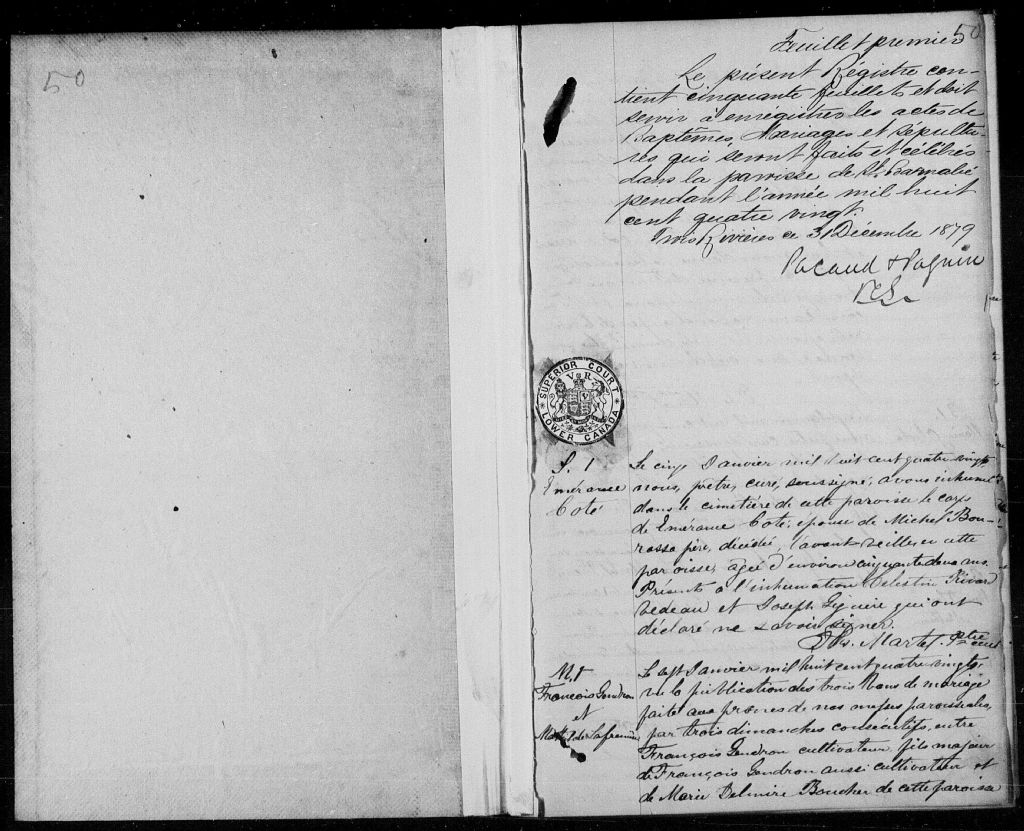 50
50
Feuillet premier
Le présent Régistre con-
tient cinquante feuillets et doit
servir à enrégistrer les actes de
Baptêmes, Mariages et Sépultu-
res qui seront faits et célébrés
dans la paroisse de St. Barnabé
pendant l'année mil huit
cent quatre vingt.
Trois Rivières ce 31 Décembre 1879
Pacaud & Paquin
SUPERIOR COURT
V R
LOWER CANADA
S. 1
Emérance
Coté
Le cinq Janvier mil huit cent quatre vingt
nous, prêtre, curé, soussigné, avons inhumé
dans le cimetière de cette paroisse le corps
de Emérance Coté, épouse de Michel Bou-
rassa père, décédée, l'avant veille, en cette
paroisse, agée d'environ cinquante deux ans.
Présents à l'inhumation Célestin Rivard
Bedeau et Joseph Lejuire qui ont
déclaré ne savoir signer.
Martel Ptre
curé
M. 1
François Gendron
et
Lafrenière
Le sept Janvier mil huit cent quatre vingts,
vu la publication des trois bans de mariage
faite aux prones de nos messes paroissiales,
par trois dimanches consécutifs, entre
François Gendron cultivateur, fils majeur
de François Gendron aussi cultivateur et
de Marie Delmire Boucher de cette paroisse